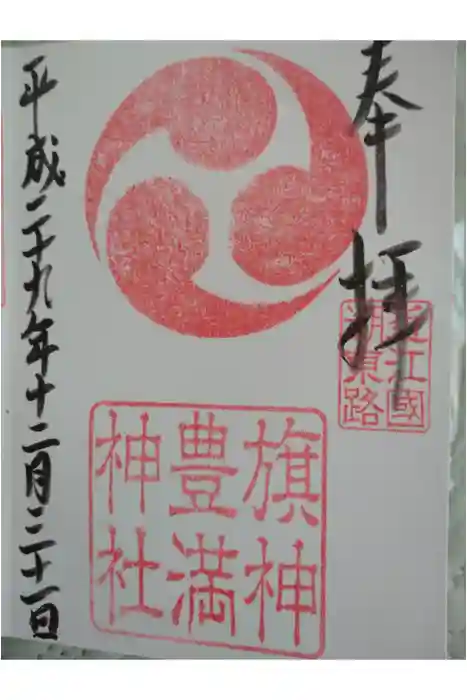 奉拝
近江國
湖東路
旗神
豊満
神社
平成二十九年十二月三十一日